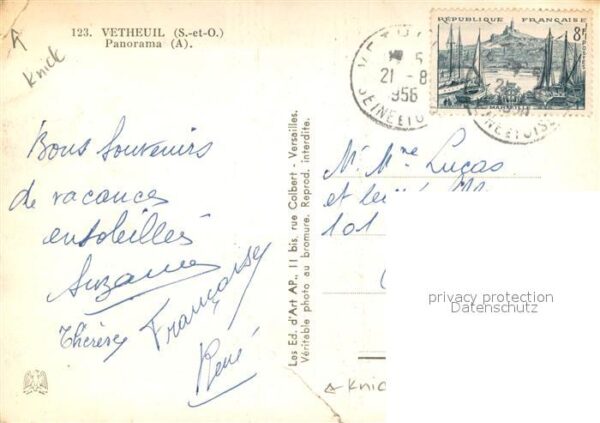 123. VETHEUIL (S.-et-O.)
Panorama (A).
Knick
Bons Souvenirs
de vacances
ensoleillés
Suzanne
Françoise
Thérèse
René
Les Ed. d'Art AP., 11 bis, rue Colbert - Versailles.
Véritable photo au bromure. Reprod. interdite.
RÉPUBLIQUE FRANÇAISE
8F
21 - 8
1956
SEINE ET OISE
Mr Mme Lucas
et
101
privacy protection
Datenschutz
Knick